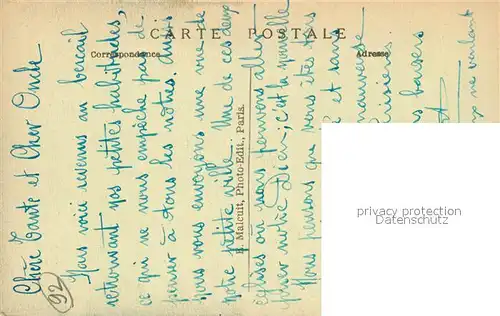 CARTE POSTALE
Correspondance
Adresse
Chère Tante et Cher Oncle
Nous voici revenus au bercail
retrouvant nos petites habitudes,
ce qui ne nous empêche pas de
penser à tous les nôtres. Aussi
nous vous envoyons une vue de
notre petite ville. Une de ces deux
églises où nous pouvons aller
prier notre Dieu ; c'est la nouvelle
Nous pensons que vous êtes tous
et sans
mauvaise
baisers
ne veulent
H. Malcuit, Photo-Edit., Paris.
92
privacy protection
VERKAUFT.COM